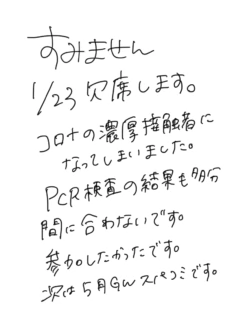 すみません
1/23 欠席します。
コロナの濃厚接触者に
なってしまいました。
PCR検査の結果も多分
間に合わないです。
参加したかったです。
次は5月GWスパコミです。